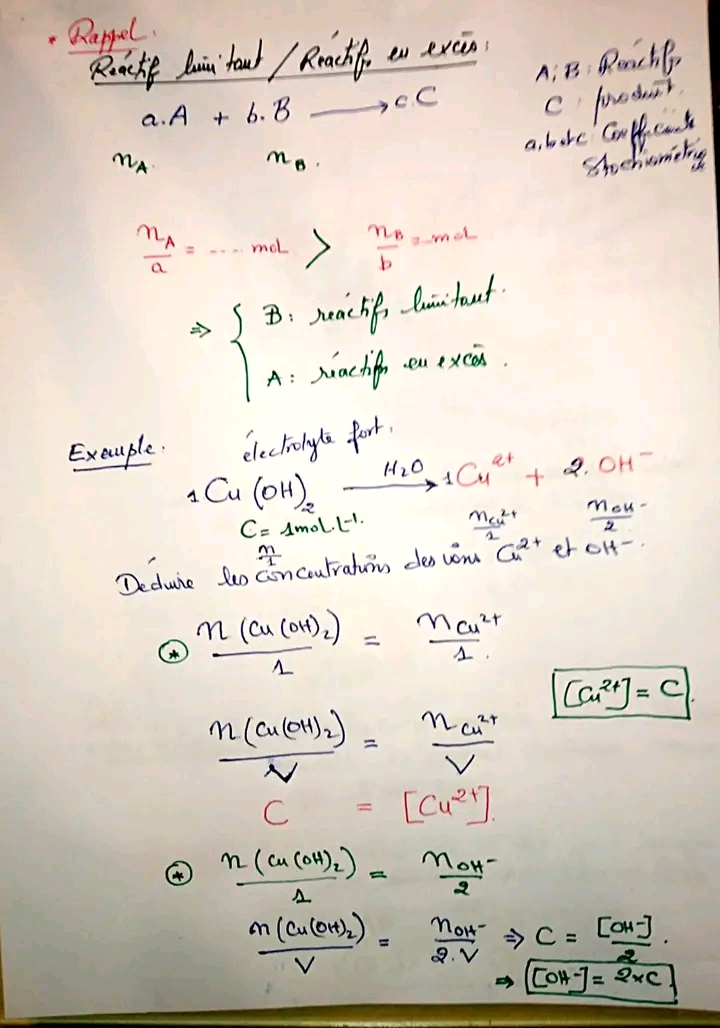 * Rappel :
Réactif limitant / Réactif en excès :
a.A + b.B ⟶ c.C
A; B : Réactifs
C : produit.
a, b et c Coefficients
Stochiométrique
n_A
n_B.
n_A/a = .... mol > n_B/b = ... mol
⇒ { B : réactif limitant.
A : réactif en excès.
Exemple : électrolyte fort.
1 Cu(OH)₂ ⟶ (H₂O) 1 Cu²⁺ + 2. OH⁻
C = 1 mol.L⁻¹.
n/1
n_Cu²⁺/1
n_OH⁻/2
Déduire les concentrations des ions Cu²⁺ et OH⁻.
* n(Cu(OH)₂)/1 = n_Cu²⁺/1.
[Cu²⁺] = C
n(Cu(OH)₂)/V = n_Cu²⁺/V
C = [Cu²⁺].
* n(Cu(OH)₂)/1 = n_OH⁻/2
n(Cu(OH)₂)/V = n_OH⁻/2.V ⇒ C = [OH⁻]/2.
⇒ [OH⁻] = 2×C